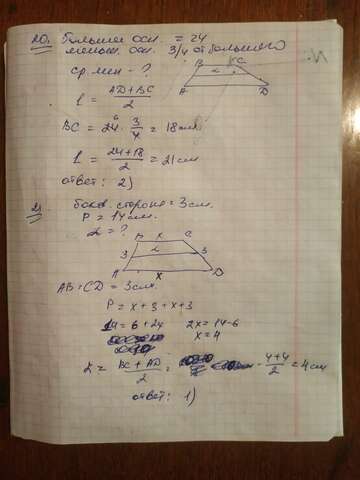 20) Большая осн. = 24
меньш. осн. 3/4 от большего
ср. лин - ?
B C
A D
l = AD+BC / 2
BC = 24 · 3/4 = 18 см
6
l = 24+18 / 2 = 21 см
ответ: 2)
2)
боков. сторона = 3 см.
P = 14 см.
L = ?
B x C
3 L 3
A x D
AB = CD = 3 см.
P = x + 3 + x + 3
14 = 6 + 2x 2x = 14-6
x = 4
L = BC + AD / 2 = 4+4 / 2 = 4 см
ответ: 1)